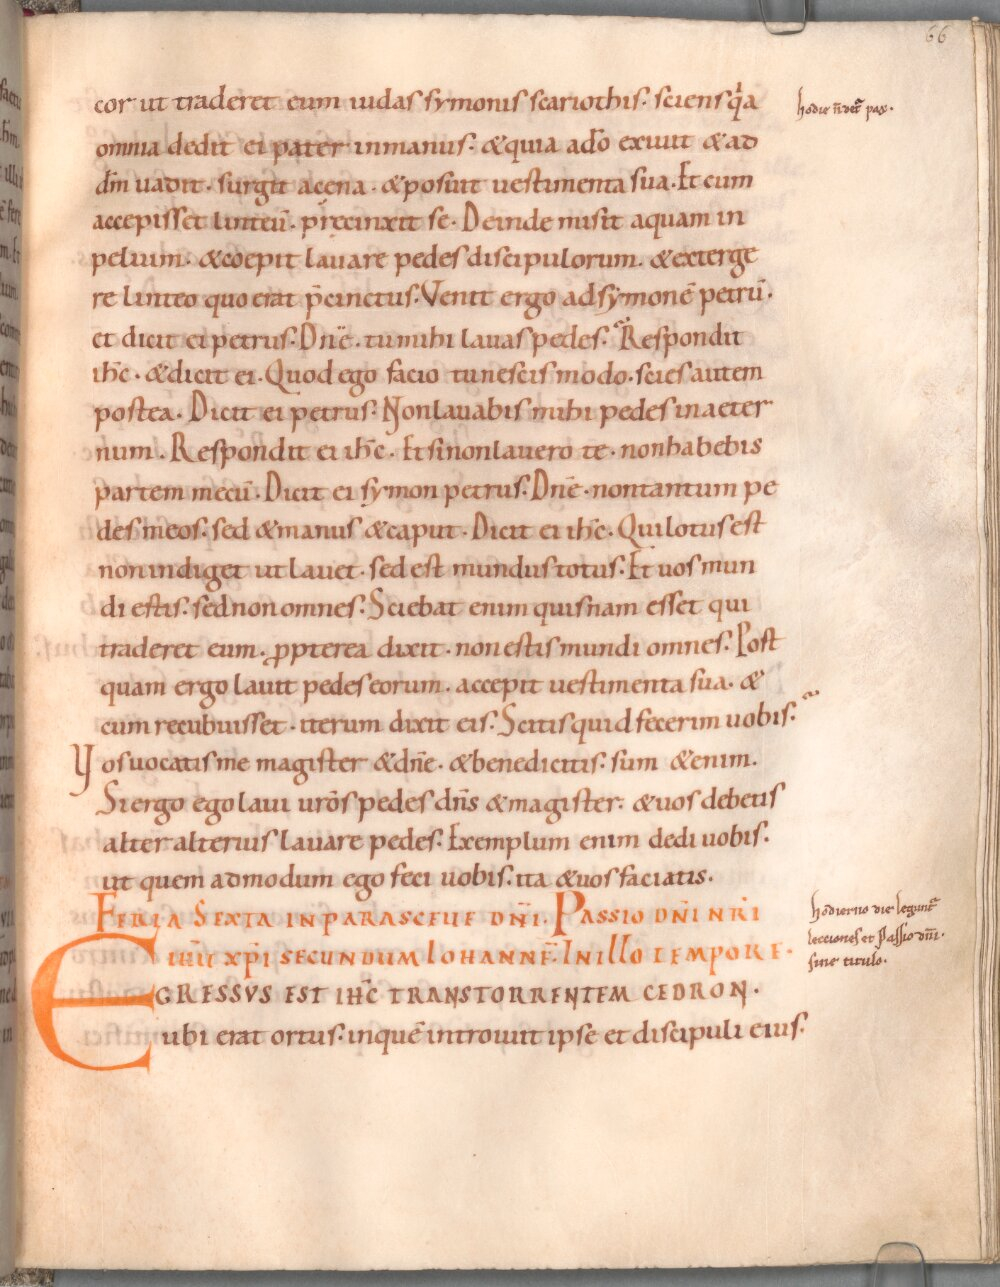 66
cor ut traderet eum iudas symonis scariothis. sciens q̇a
hodie n̄ det̄ pax.
omnia dedit ei pater in manus. & quia a do̅ exiuit & ad
dm̅ uadit. surgit a cena. & posuit uestimenta sua. Et cum
accepisset linteū. p̄recinxit se. Deinde misit aquam in
peluim. & coepit lauare pedes discipulorum. & exterge
re linteo quo erat p̄cinctus. Venit ergo ad symonē petrū.
et dicit ei petrus. Dnē. tu mihi lauas pedes. Respondit
ih̅c. & dicit ei. Quod ego facio tu nescis modo. scies autem
postea. Dicit ei petrus. Non lauabis mihi pedes in aeter
num. Respondit ei ih̅c. Et si non lauero te. non habebis
partem mecū. Dicit ei symon petrus. Dnē. non tantum pe
des meos. sed & manus & caput. Dicit ei ih̅c. Qui lotus est
non indiget ut lauet. sed est mundus totus. Et uos mun
di estis. sed non omnes. Sciebat enim quisnam esset qui
traderet eum. ꝓpterea dixit. non estis mundi omnes. Post
quam ergo lauit pedes eorum. accepit uestimenta sua. &
cum recubuisset. iterum dixit eis. Scitis quid fecerim uobis.
Vos uocatis me magister & dnē. & bene dicitis. sum & enim.
Si ergo ego laui urōs pedes dn̅s & magister. & uos debetis
alter alterius lauare pedes. Exemplum enim dedi uobis.
ut quem admodum ego feci uobis. ita & uos faciatis.
FERIA SEXTA IN PARASCEUE DNI̅. PASSIO DNI̅ NRI̅
hodierno die legunt̄
lecciones et Passio dnī.
sine titulo.
IHU̅ XPI̅ SECUNDUM IOHANNĒ. IN ILLO TEMPORE.
EGRESSVS EST IHC̅ TRANS TORRENTEM CEDRON.
ubi erat ortus. in quē introiuit ipse et discipuli eius.